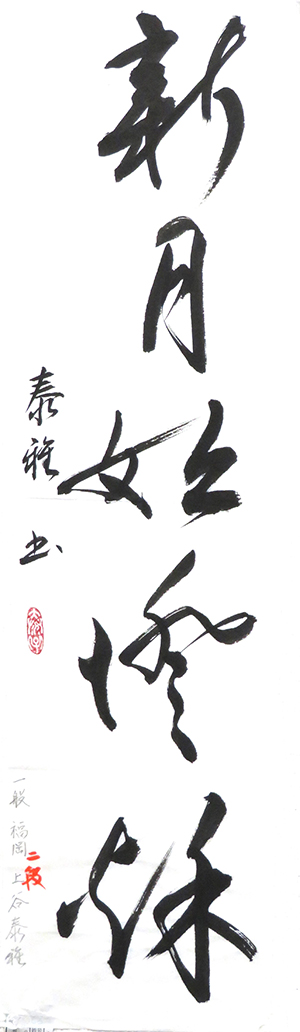 新月始澄秌
泰雅書
一般 福岡 上谷泰雅
二段